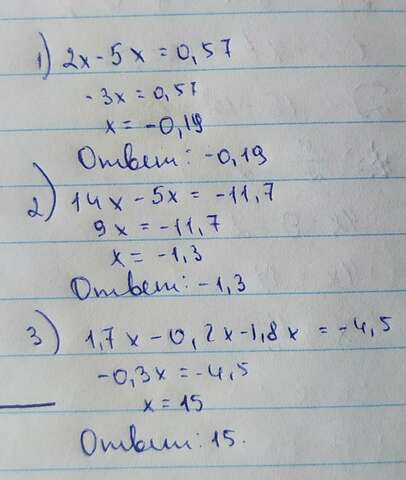 1) 2x - 5x = 0,57
-3x = 0,57
x = -0,19
Ответ: -0,19
2) 14x - 5x = -11,7
9x = -11,7
x = -1,3
Ответ: -1,3
3) 1,7x - 0,2x - 1,8x = -4,5
-0,3x = -4,5
x = 15
Ответ: 15.